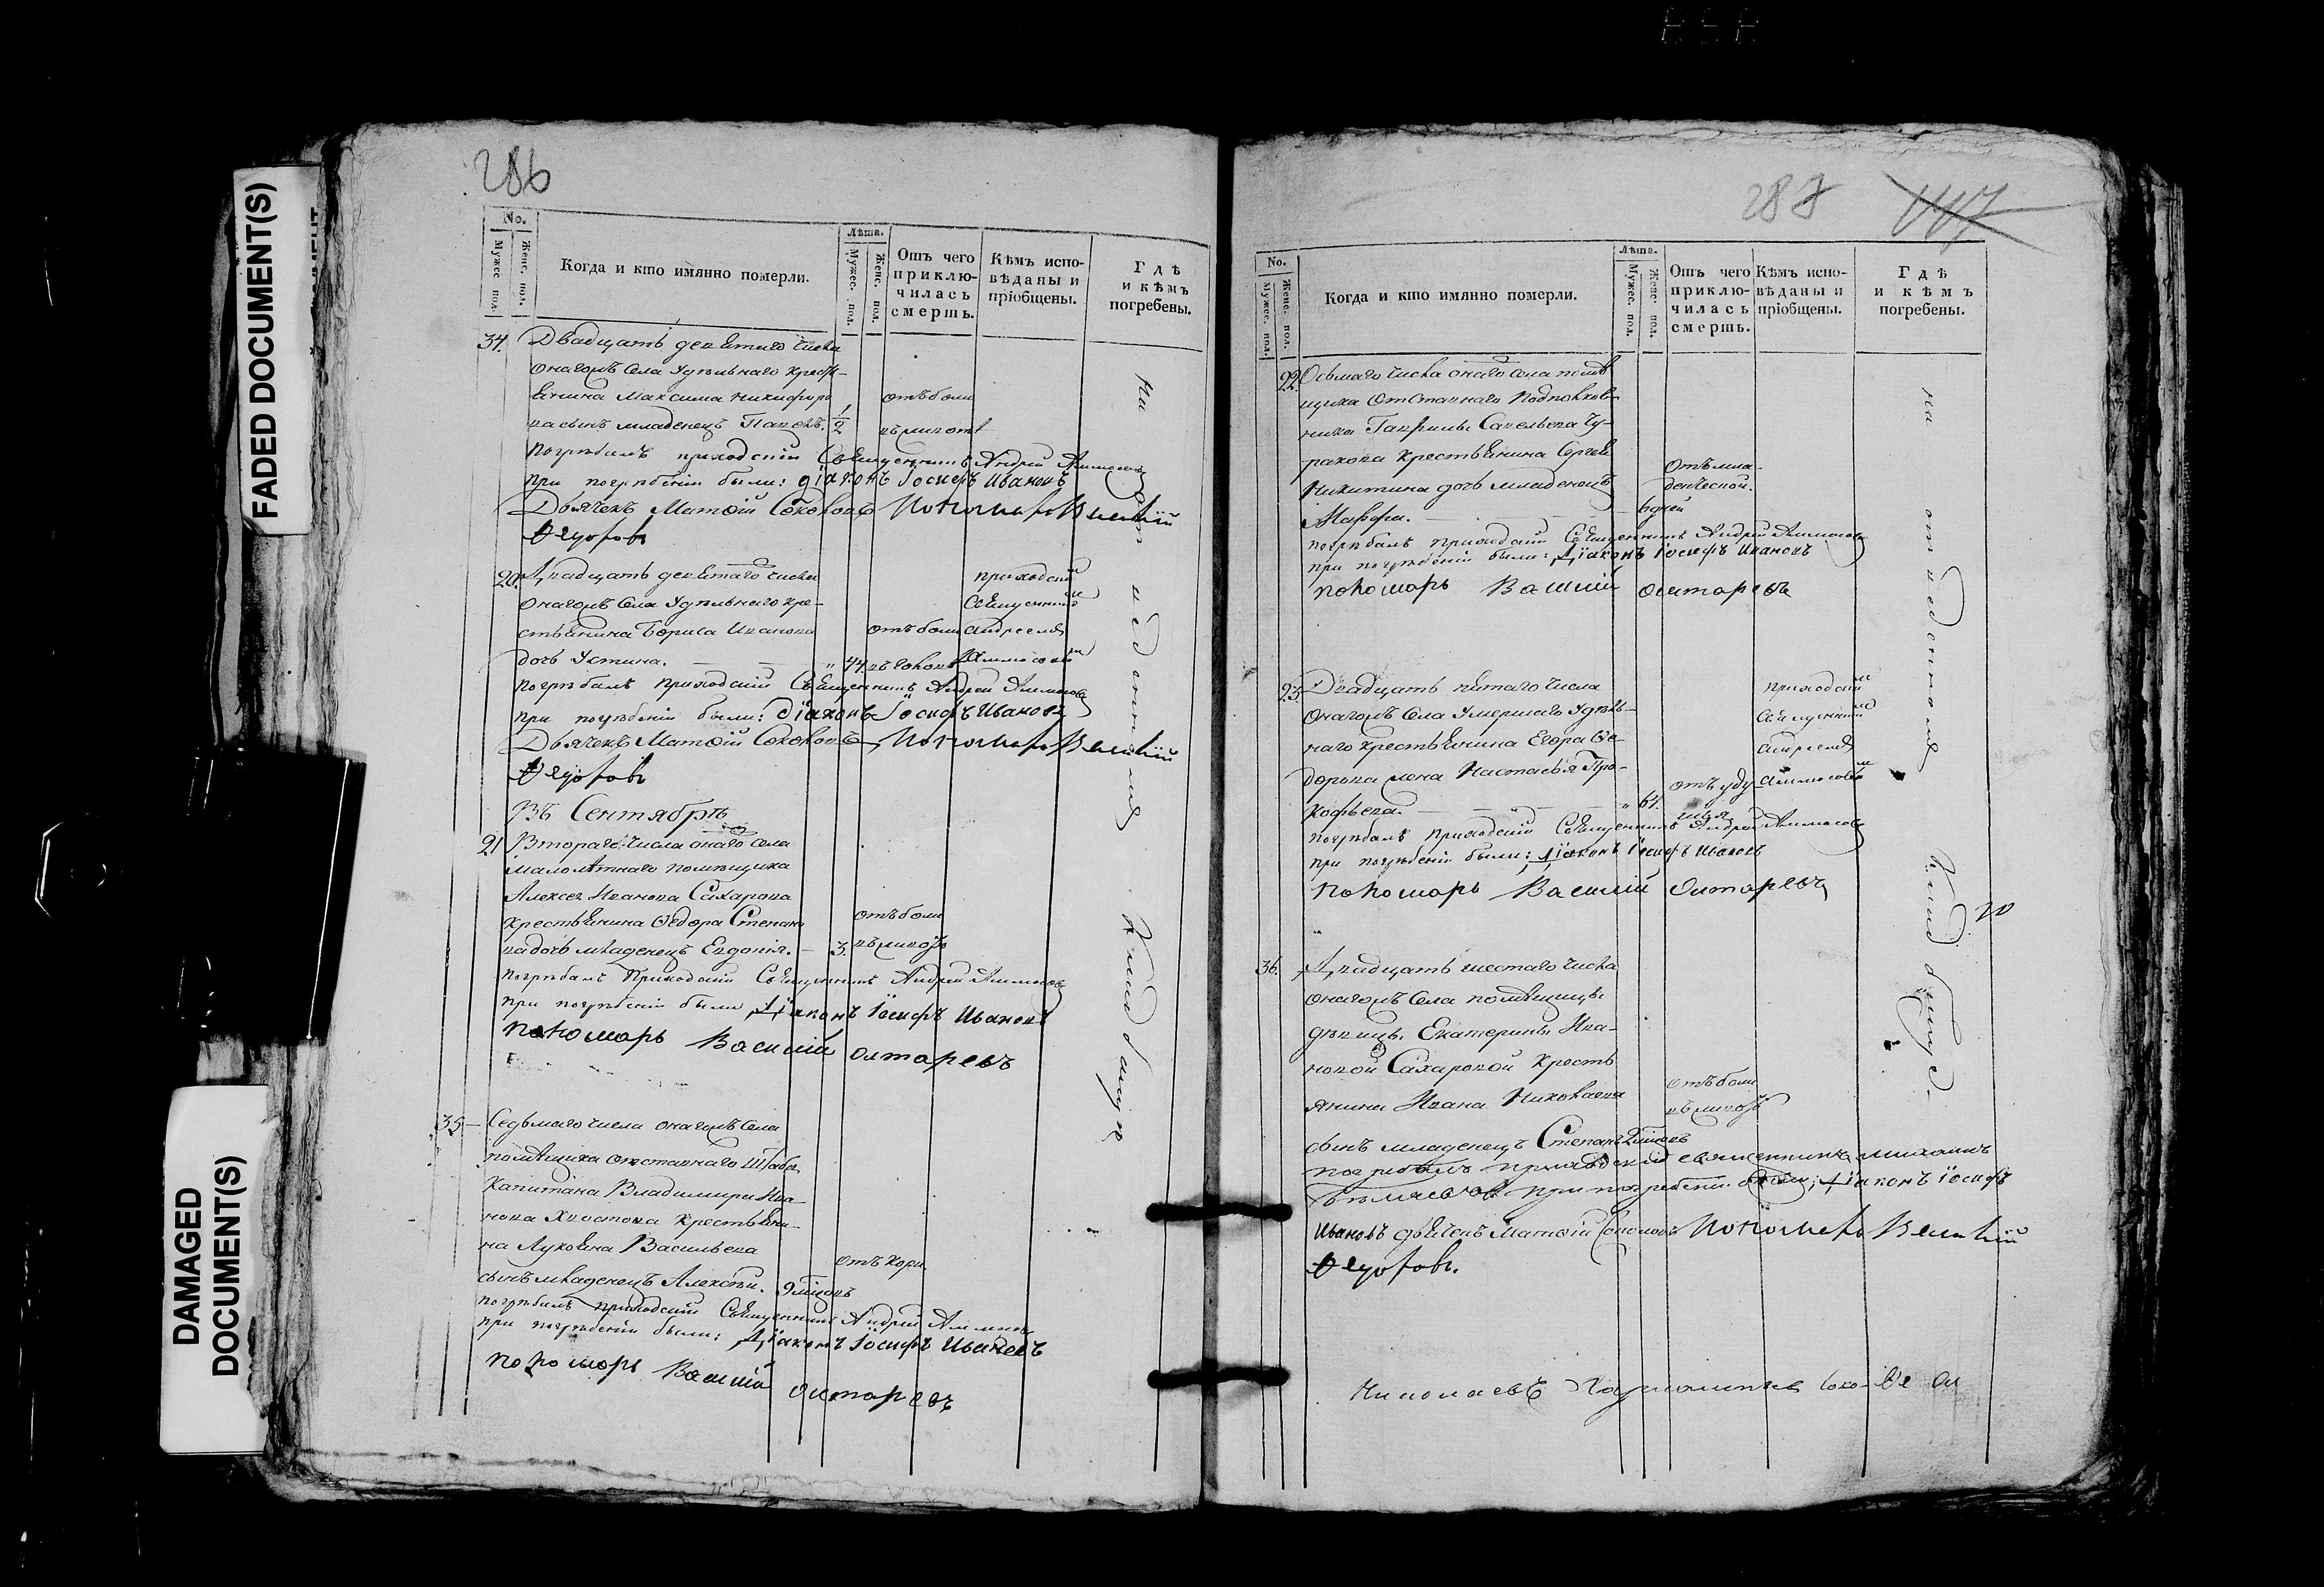 FADED DOCUMENT(S)
DAMAGED
DOCUMENT(S)
286
No.
Мужес. пол.
Женс. пол.
Когда и кто имянно померли.
Лѣта.
Мужес. пол.
Женс. пол.
Отъ чего
приклю-
чилась
смерть.
Кѣмъ испо-
вѣданы и
пріобщены.
Гдѣ
и кѣмъ
погребены.
34. Двадцать девятаго числа
онагожъ села Удѣльнаго кресть-
янина Максима Никифоро
ва сынъ младенецъ Павелъ. 1/2
отъ боли
въ животѣ
погрѣбалъ приходскій Священникъ Андрей
при погрѣбеніи были: діаконъ Іосифъ Ивановъ
Дьячекъ Матвій Соколовъ Пономарь Василій
Ѳедоровъ
20. Двадцать девятаго числа
онагожъ села Удѣльнаго кре-
стьянина Бориса Иванова
дочь Устина. 44.
отъ боли
приходским
Священником
Андреемъ
погрѣбалъ приходскій Священникъ Андрей
при погрѣбеніи были: діаконъ Іосифъ Ивановъ
Дьячекъ Матвій Соколовъ Пономарь Василій
Ѳедоровъ
Въ Сентябрѣ
21 Втораго числа онаго села
малолѣтнаго помѣщика
Алексея Иванова Сахарова
крестьянина Ѳедора Степано
ва дочь младенецъ Евдокія. 3.
отъ боли
въ животѣ
погрѣбалъ Приходскій Священникъ Андрей
при погрѣбеніи были Діаконъ Іосифъ Ивановъ
пономарь Василій Олтаревъ
35 Седьмаго числа онагожъ села
помѣщика отставнаго Штабсъ
Капитана Владимира Ива-
нова Хвостова крестьяни-
на Лукояна Васильева
сынъ младенецъ Алексѣй. 9 мѣцовъ
отъ кори
погрѣбалъ приходскій Священникъ Андрей
при погрѣбеніи были: Діаконъ Іосифъ Ивановъ
пономарь Василій Олтаревъ
на отведенномъ кладбищѣ
287
No.
Мужес. пол.
Женс. пол.
Когда и кто имянно померли.
Лѣта.
Мужес. пол.
Женс. пол.
Отъ чего
приклю-
чилась
смерть.
Кѣмъ испо-
вѣданы и
пріобщены.
Гдѣ
и кѣмъ
погребены.
22. Осьмаго числа онаго села помѣ
щика Отставнаго Подполков-
ника Гаврилы Савельева Чу-
ракова крестьянина Сергея
Никитина дочь младенецъ
Марфа. 6 дней
Отъ мла-
денческой.
погрѣбалъ приходскій Священникъ Андрей
при погрѣбеніи были: Діаконъ Іосифъ Ивановъ
пономарь Василій Олтаревъ
23. Двадцать пятаго числа
онагожъ села умершаго Удѣль-
наго крестьянина Егора Ѳе-
дорова жена Настасья Про-
кофьева. 64.
отъ уду
шья
приходским
Священником
Андреемъ
погрѣбалъ приходскій Священникъ Андрей
при погрѣбеніи были: Діаконъ Іосифъ Ивановъ
пономарь Василій Олтаревъ
36. Двадцать шестаго числа
онагожъ села помѣщицы
дѣвицы Екатерины Ива-
новой Сахаровой кресть
янина Ивана Николаева
сынъ младенецъ Степанъ
отъ боли
въ животѣ
погребалъ приходскій священникъ Михаилъ
при погребеніи были: Діаконъ Іосифъ
Ивановъ дьячекъ Матвій Соколовъ Пономарь Василій
Ѳедоровъ.
на отведенномъ кладбищѣ